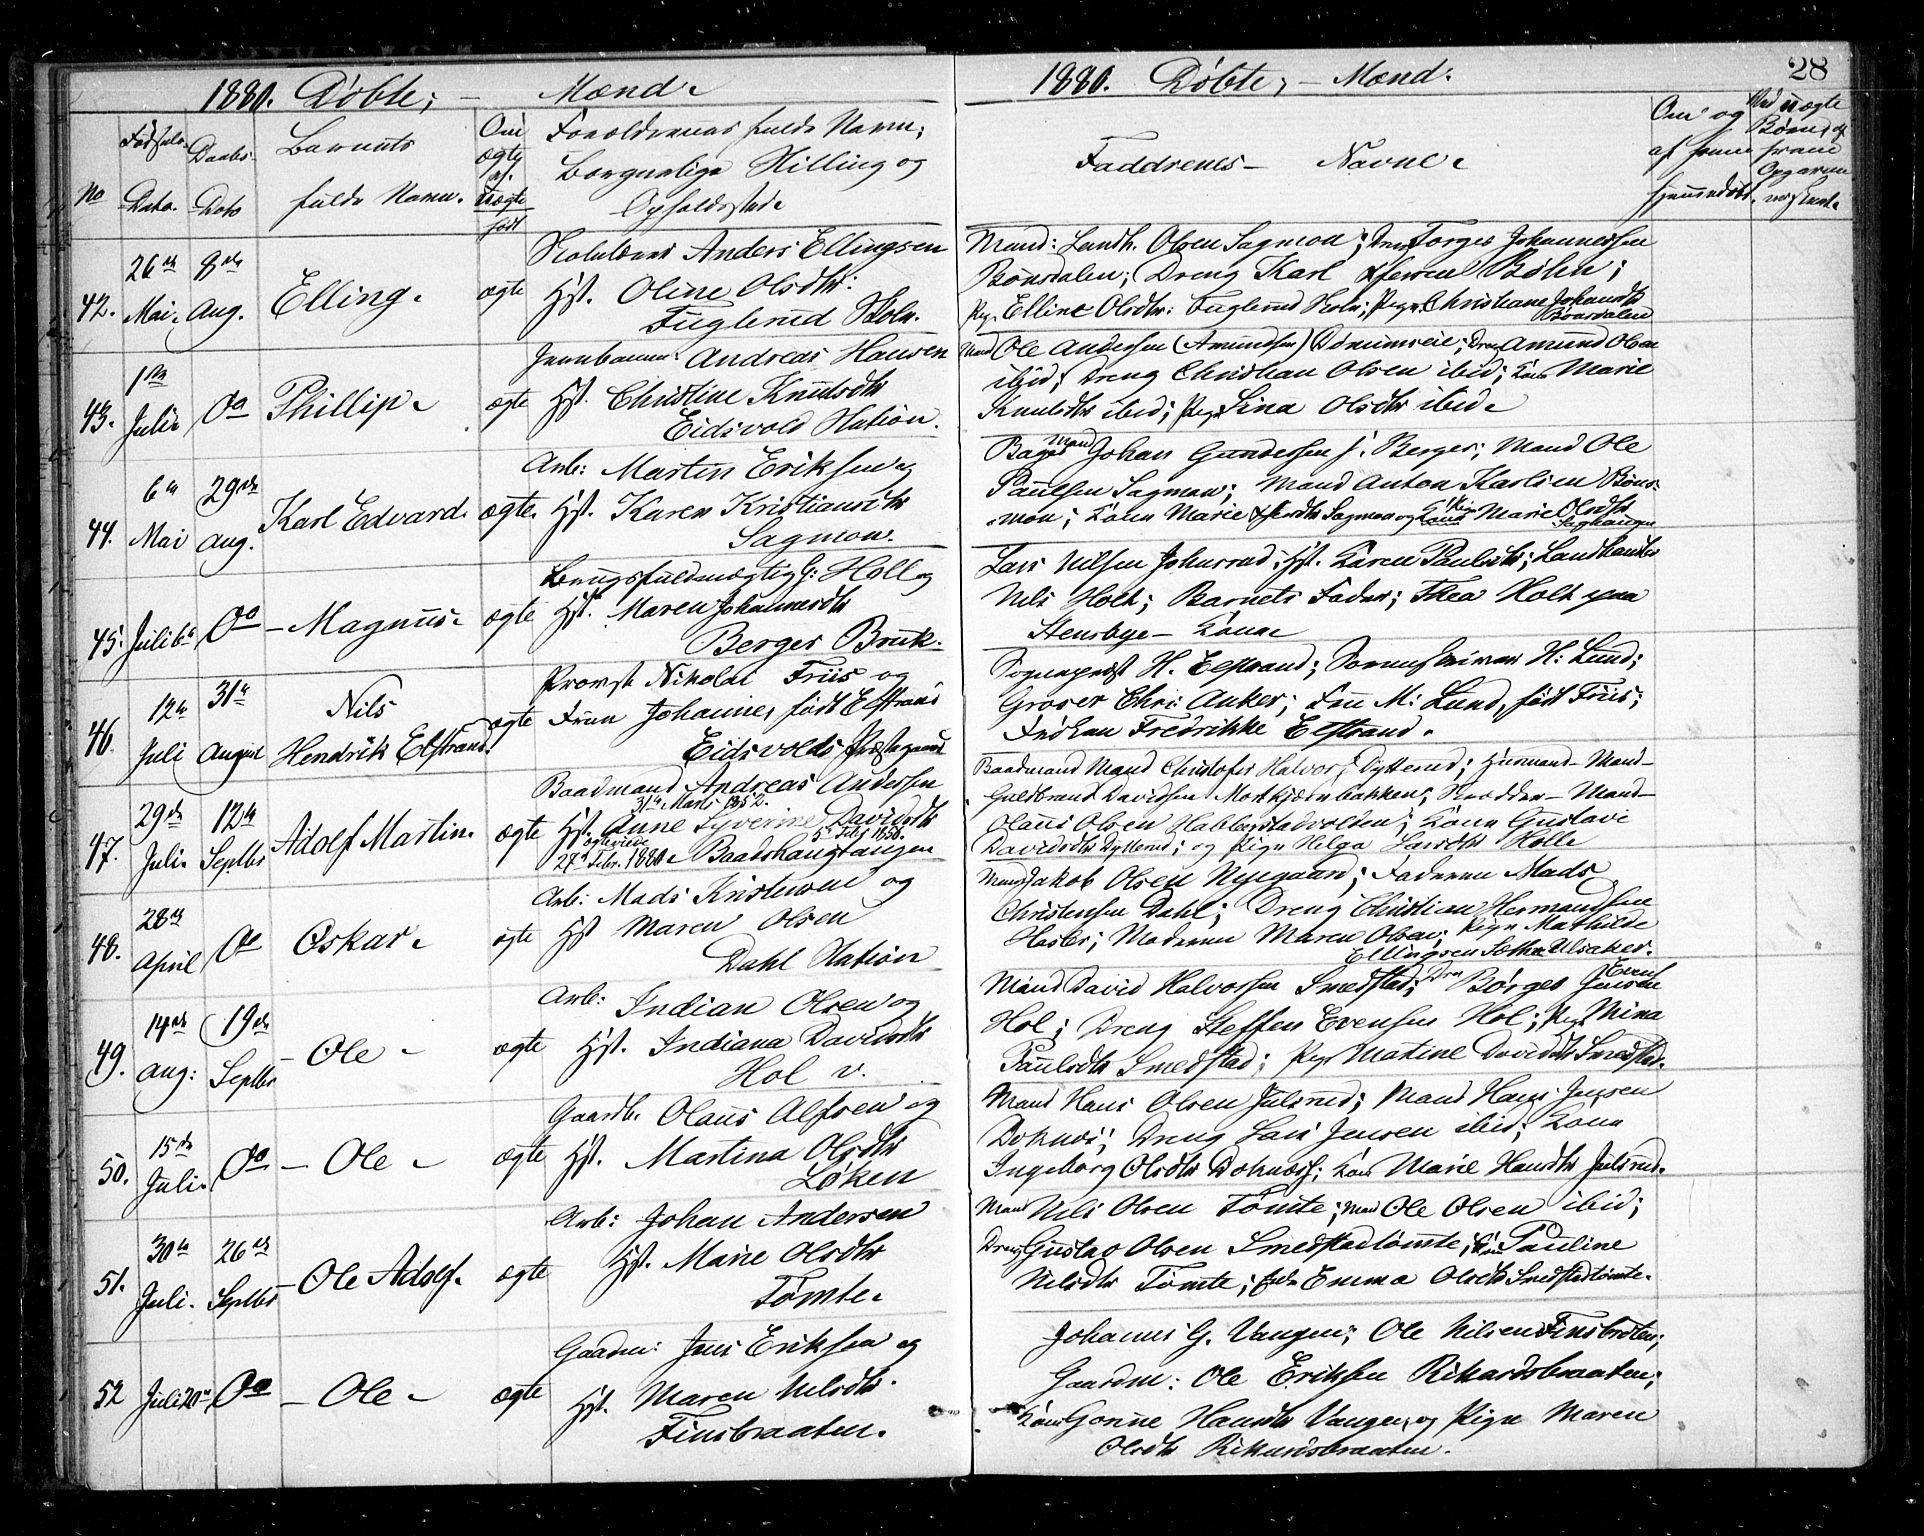 1880. Døbte, — Mænd.
No
Fødsels-
Dato.
Daabs-
Dato
Barnets
fulde Navn.
Om
ægte
el.
uægte
født
Forældrenes fulde Navn,
Borgerlige Stilling og
Opholdssted.
42.
26de
Mai.
8de
Aug.
Elling.
ægte
Anders Ellingsen
Hst. Oline Olsdtr:
Fuglerud Skole.
43.
1ste
Juli
Do
Phillip.
ægte
Andreas Hansen
Hst. Christine Knudsdtr
Eidsvold Station.
44.
6te
Mai
29de
Aug.
Karl Edvard.
ægte.
Arb: Martin Eriksen og
Hst. Karen Kristiansdtr
Sagmoen.
45.
Juli 6te
Do
— Magnus.
ægte
Brugsfuldmægtig G: Holt og
Hst. Maren Johannesdtr
Berger Bruk.
46.
12te
Juli
31te
August
Nils
Hendrik Elstrand.
ægte
Provst Nikolai Friis og
Frue Johanne, født Elstrand
Eidsvolds Præstegaard
47.
29de
Juli.
12te
Septbr
Adolf Martin.
ægte
Baadmand Andreas Andersen
31te Marts 1852.
Hst. Anne Syverine Davidsdtr
ægteviede
27de Febr. 1880. Baadshaugtangen
48.
28de
April
Do
Oskar.
ægte
Arb: Mads Kristensen og
Hst Maren Olsen
Dahl Station
49.
14de
Aug:
19de
Septbr
— Ole —
ægte
Arb: Indian Olsen og
Hst. Indiana Davidsdtr
Hol v.
50.
15de
Juli.
Do
— Ole —
ægte
Gaardb. Olaus Alfsen og
Hst. Martina Olsdtr
Løken
51.
30te
Juli.
26de
Septbr
— Ole Adolf.
ægte
Arb: Johan Andersen
Hst. Marie Olsdtr
Tømte.
52
Juli 20de
Do
— Ole —
ægte
Gaardm: Jens Eriksen og
Hst. Maren Nilsdtr.
Finsbraaten.
1880. Døbte, — Mænd.
28
Faddrenes — Navne.
Om og
af hvem
hjemmedøbt.
Ved uægte
Børn, af
hvem
Mand: Landh. Olsen Sagmoen; Dreng Torger Johannessen
Bønsdalen; Dreng Karl Bøhn;
Pige Elline Olsdtr: Fuglerud Skole; Pige Christiane Johansdtr
Bønsdalen
Mand Ole Andersen (Amundsen) Dønnumseie; Dreng Amund Olsen
ibid; Dreng Christian Olsen ibid; Kone Marie
Knudsdtr ibid; Pige Sina Olsdtr ibid.
Mand Johan Gundersen Berger; Mand Ole
Paulsen Sagmoen; Mand Anton Karlsen Bøns-
moen; Konen Marie Sagmoen og Pige Marie Olsdtr
Saghaugen
Lars Nilsen Johnsrud; Hst. Karen Paulsdtr; Landhandler
Nils Holt; Barnets Fader; Thea Holt paa
Stensbye — Kone
Sogneprest H. Elstrand; Sorenskriver H: Lund;
Groser Chr: Anker; Frue M: Lund, født Friis;
Frøken Fredrikke Elstrand.
Baadmand Mand Christofer Halvors. Dytterud; Husmand — Mand —
Guldbrand Davidsen Mortkjernbakken; Skrædder — Mand —
Olaus Olsen Habberstadvolden; Kone Gustave
Davidsdtr Dytterud; og Pige Helga Larsdtr Holle
Mand Jakob Olsen Nygaard; Faderen Mads
Christensen Dahl; Dreng Christian Hermandsen
Hasler; Moderen Maren Olsen; Pige Mathilde
Ellingsen Sæthre Ulsaker.
Mand David Halvorsen Smedstad; Dreng Børger Evensen
Hol; Dreng Steffen Evensen Hol; Pige Mina
Paulsdtr Smedstad; Pige Matine Davidsdtr Smedstad.
Mand Hans Olsen Julsrud; Mand Hans Jensen
Doknæs; Dreng Lars Jensen ibid; Kone
Ingeborg Olsdtr Doknæs; Kone Marie Hansdtr Julsrud.
Mand Nils Olsen Tømte; Mand Ole Olsen ibid;
Dreng Gustav Olsen Smedstadtømte; Kone Pauline
Nilsdtr Tømte; Pige Emma Olsdtr Smedstadtømte.
Johannes G. Vangen; Ole Nilsen Finsbroten;
Gaardm: Ole Eriksen Rikardsbraaten;
Kone Gonne Hansdtr Vangen, og Pige Maren
Olsdtr Rikardsbraaten.